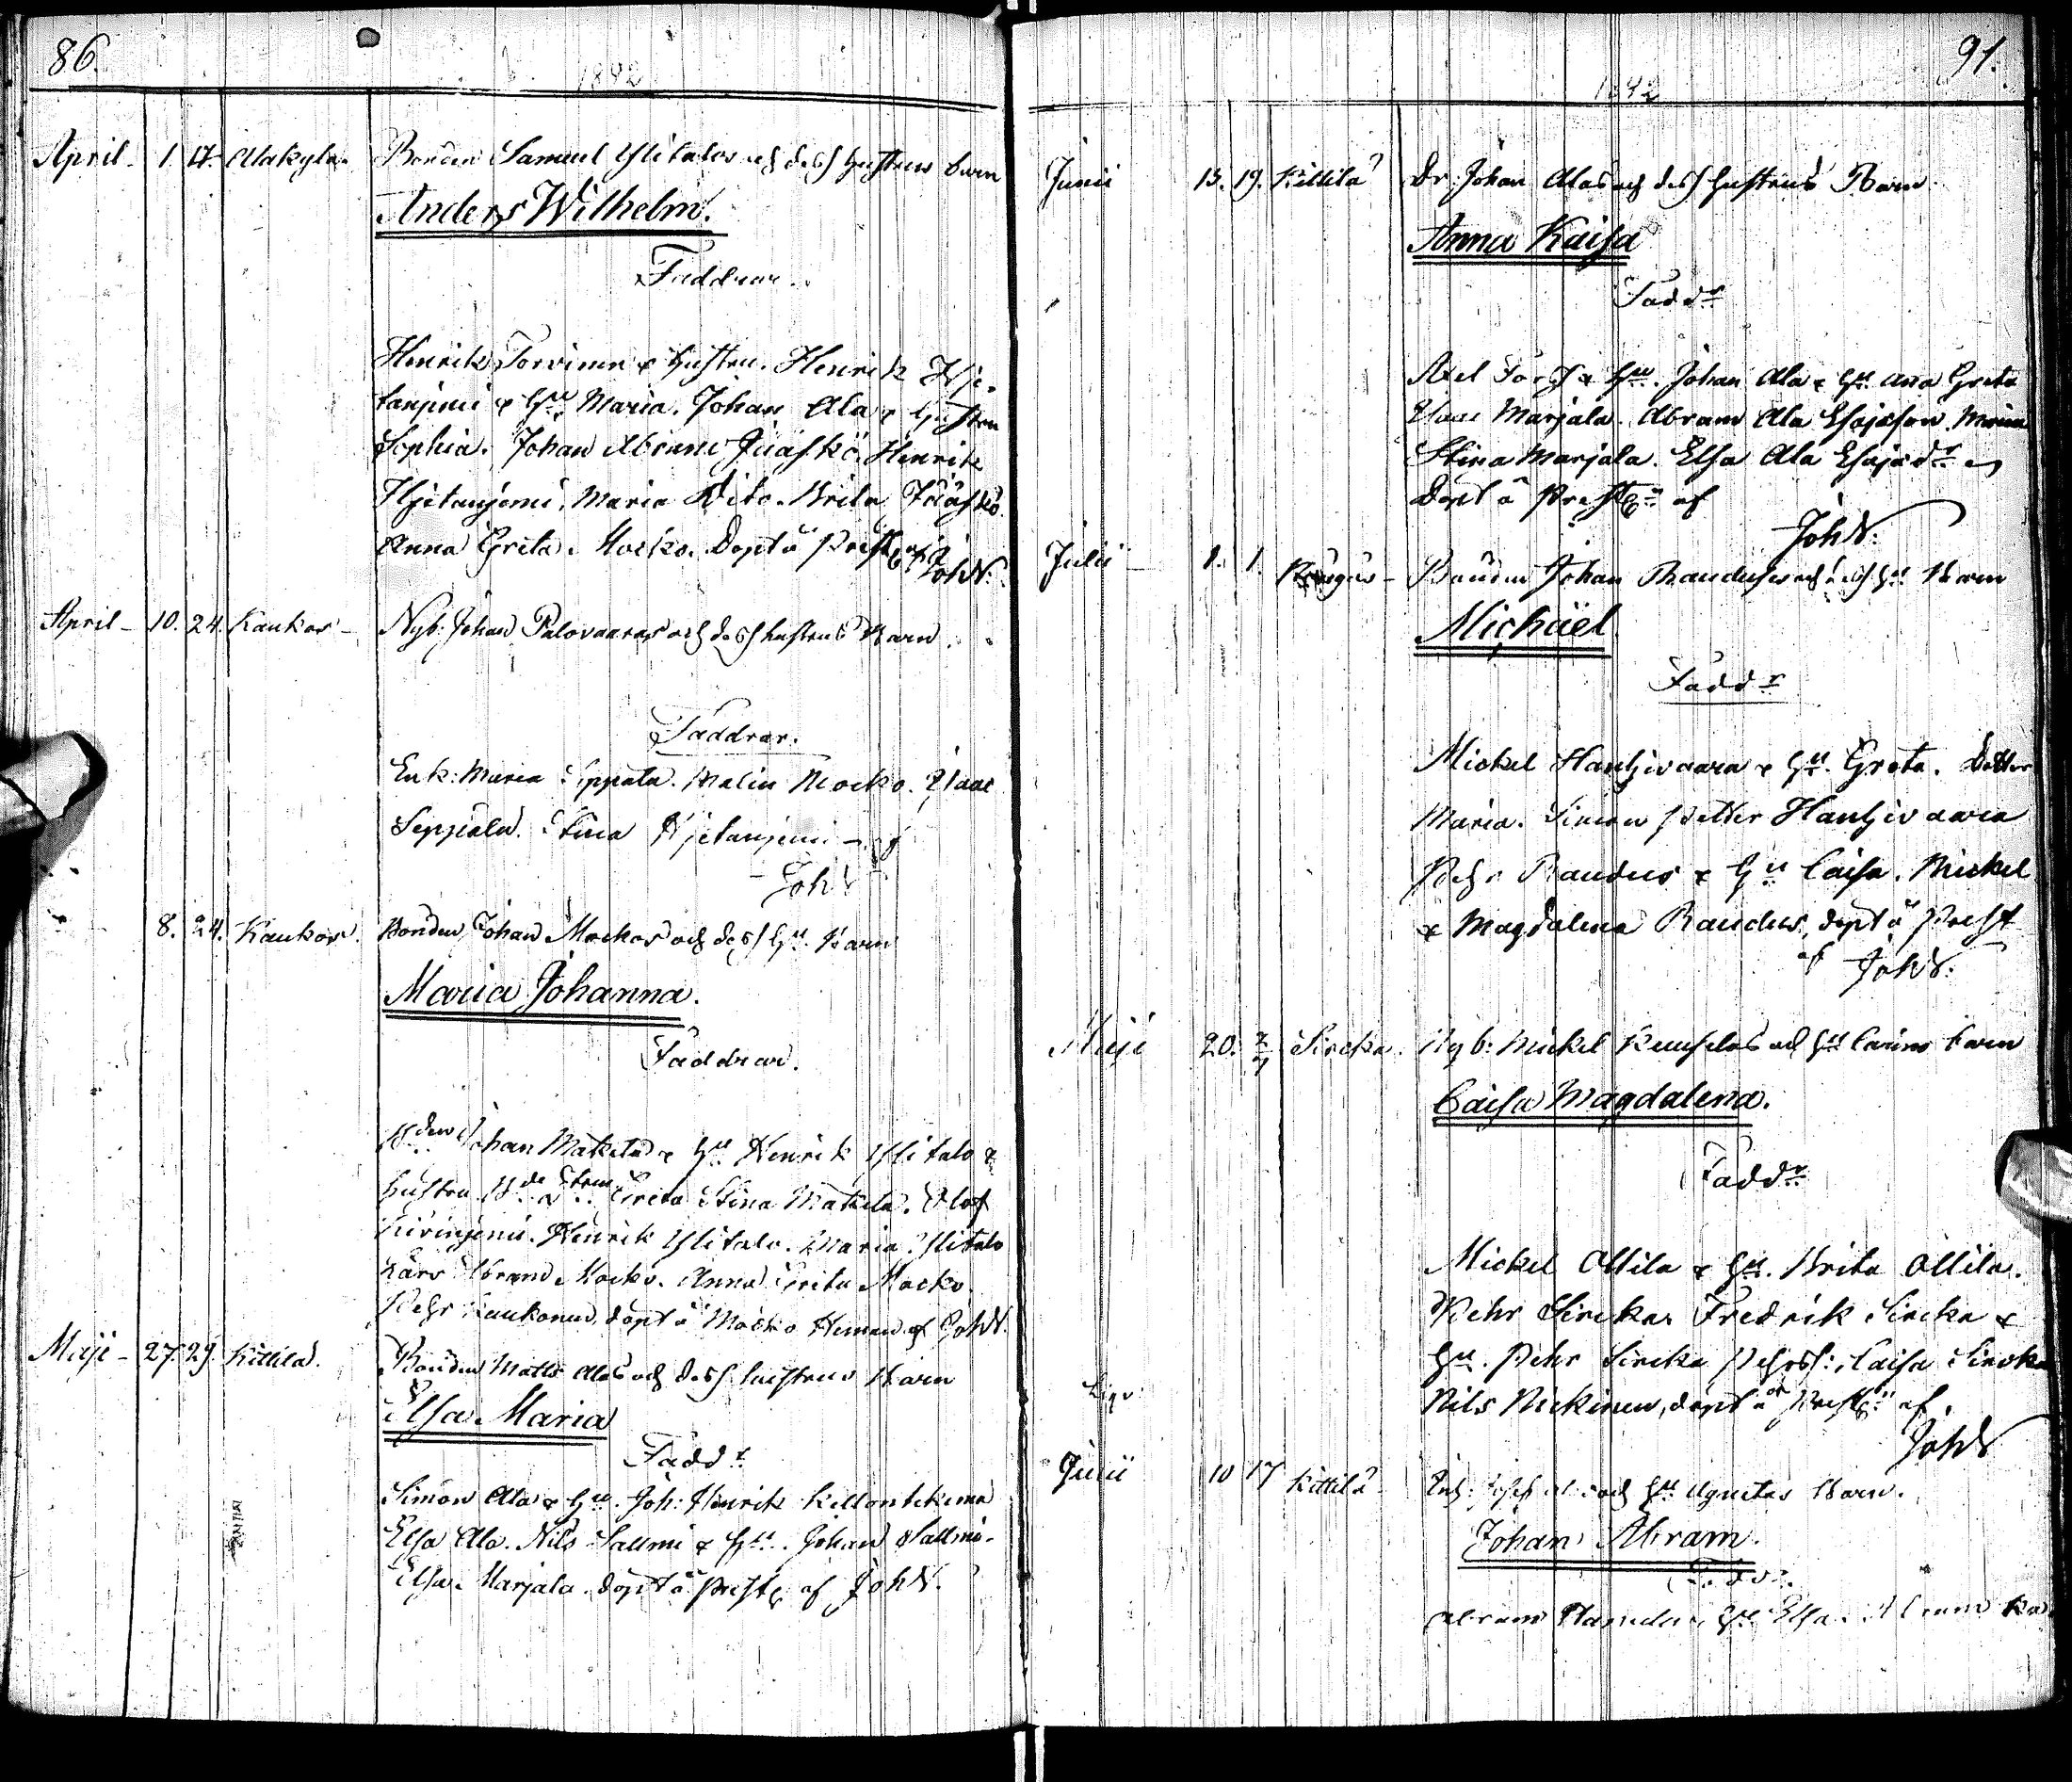 86.
1842
April - 1. 17. Alakyla. Bonden Samuel Ylitalos och dess hustrus barn
Anders Wilhelm.
Faddrar.
Henrik Torvinen & hustru. Henrik Hje-
tanjemi & Hu Maria. Johan Ala & hustru
Sophia. Johan Abram Jääskö. Henrik
Hjetanjemi, Maria Dito. Brita Jääskö.
Anna Greta Mocko. Döpt å Prestg af Joh W.
April - 10. 24. Kaukos - Nyb: Johan Palovaaras och dess hustrus Barn.
Faddrar.
Enk: Maria Seppala. Malin Mocko. Isaac
Seppala. Stina Hjetanjemi - af
Joh W
8. 24. Kaukos. Bonden Johan Mockos och dess Hu Barn
Maria Johanna.
Faddrar.
Bden Johan Makela & Hu Henrik Ylitalo &
hustru Greta Stina Makela. Olof
Henrik Ylitalo. Maria Ylitalo
Lars Abram Mocko. Anna Greta Mocko.
Pehr Kaukonen döpt å Mocko Heman af Joh W.
Maji - 27. 29. Kittilä. Bonden Matts Alas och dess hustrus Barn
Elsa Maria
Faddr
Simon Ala & Hu. Joh: Henrik
Elsa Ala. Nils Salmi & Hu. Johan Salmi.
Elsa Marjala. döpt å Prestg af Joh W.
91.
1842
Junii 15. 19. Kittilä Dr: Johan Alas och dess hustrus Barn
Anna Kaisa
Faddr
Axel & Hu. Johan Ala & Hu Anna Greta
Isaac Marjala. Abram Ala Esajasson. Maria
Stina Marjala. Elsa Ala Esajædr
Döpt å Prestg af
Joh W.
Julii 1. 1. Bonden Johan Raudus och dess Hu Barn
Michaël
Faddr
Mickel Hanhivaara & Hu Greta. Dotter
Maria. Simon Petter Hanhivaara
Pehr Raudus & Hu Caisa. Mickel
& Magdalena Raudus, döpt å Prest
af Joh W.
Maji 20. 2/7 Sircka. Nyb: Mickel och Hu Carins barn
Caisa Magdalena.
Faddr
Mickel Ollila & Hu. Brita Ollila.
Pehr Sircka. Fredrik Sircka &
Hu. Pehr Sircka Pehrss: Caisa Sircka
Nils döpt å Prestg af
Joh W
Junii 10 17 Kittilä och Hu Agnetas Barn.
Johan Abram.
Faddr.
Abram Hu Elsa. Abram